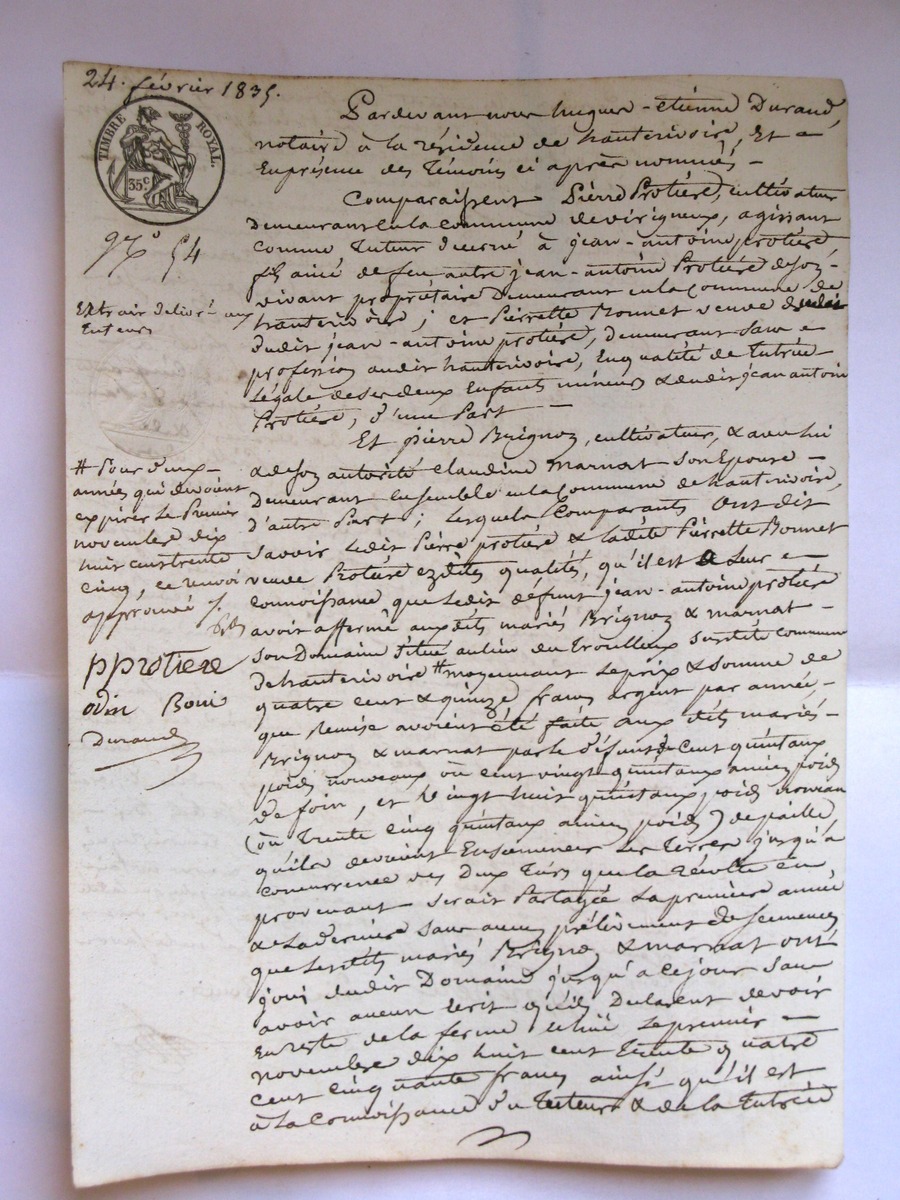 24. février 1835.
TIMBRE ROYAL.
35c
No 54
Extrait délivré aux
Tuteurs
Pardevant nous hugues-etiènne Durand,
notaire à la résidence de hauterivoire, Et
Enprésence des Témoins ci après nommés,
Comparaissent Pierre Protière, cultivateur
demeurant en la commune de virigneux, agissant
comme Tuteur décerné à jean-antoine protière,
fils ainé de feu autre jean-antoine Protière de son
vivant propriétaire demeurant en la commune de
hauterivoire; et Pierrette Bonnet veuve
dudit jean-antoine protière, demeurant sans
profession audit hauterivoire, En qualité de Tutrice
Légale de ses deux Enfants mineurs & dudit jean antoine
Protière, d'une Part
Et pierre Brignon, cultivateur, & avec lui
& de son autorité claudine marnat son Epouse
demeurant ensemble en la Commune de hauterivoire,
d'autre Part; lesquels Comparants ont dit
savoir Ledit Pierre protière & ladite Pierrette Bonnet
veuve Protière ezdites qualités, qu'il est à Leur
connoissance que Ledit défunt jean-antoine protière
avoir affermé auxdits mariés Brignon & marnat
son Domaine situé au lieu du Trouilleux susdite commune
de hauterivoire # moyennant le prix & somme de
quatre cent & quinze francs argent par année,
que Remise avoient été faite aux dits mariés
Brignon & marnat par le défunt de cent quintaux
poids nouveaux ou cent vingt quintaux anciens poids
de foin, et vingt huit quintaux poids nouveau
(ou Trente cinq quintaux anciens poids) de paille,
qu'ils devoient Ensemencer les Terres jusqu'à
concurrence des deux Tiers que la Récolte en
provenant serait Partagée La première année
& La dernière sans aucun prélèvement de semences
que lesdits mariés Brignon & marnat ont
joui dudit Domaine jusqu'à ce jour sans
avoir aucun écrit qu'ils Déclarent devoir
En reste de la ferme échue le premier
novembre dix huit cent Trente quatre
cent cinquante francs ainsi qu'il est
à la connoissance du tuteur & de la tutrice
# Pour deux
années qui devoient
expirer Le Premier
novembre dix
huit cent trente
cinq, ce renvoi
approuvé
p protiere
odin Boni
Durand